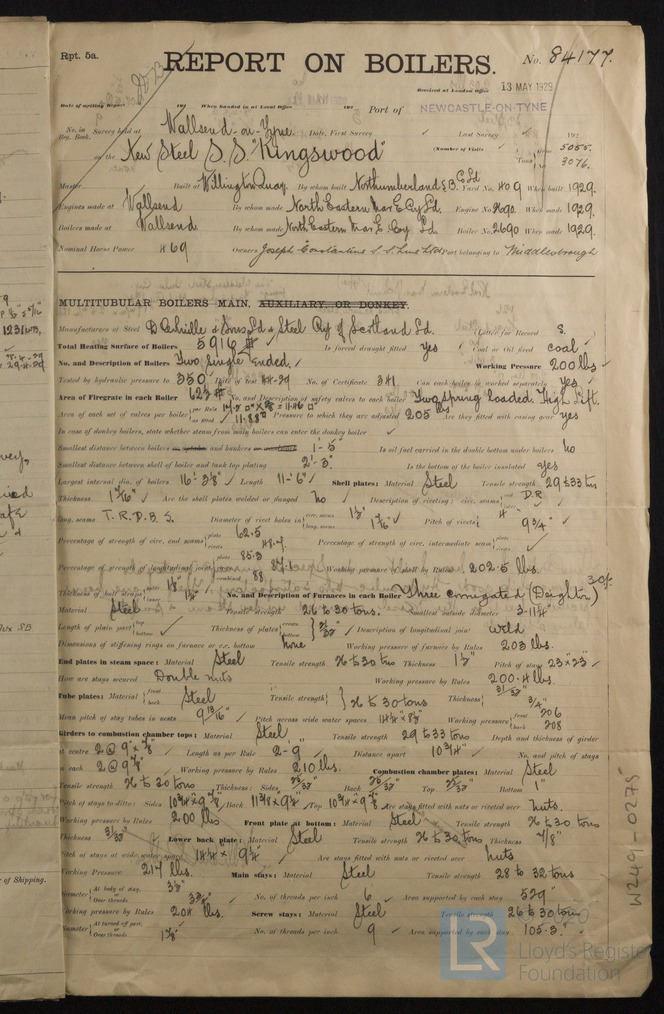 Rpt. 5a.
REPORT ON BOILERS.
No. 84177.
Received at London Office 13 MAY 1929
Date of writing Report When handed in at Local Office Port of NEWCASTLE-ON-TYNE
No. in Reg. Book. Survey held at Wallsend-on-Tyne. Date, First Survey Last Survey 192
on the New Steel S.S. "Kingswood" (Number of Visits Gross 5055. Tons Net 3076.
Master Built at Willington Quay. By whom built Northumberland S.B. Co Ld Yard No. 409 When built 1929.
Engines made at Wallsend By whom made North Eastern Mar E. Coy Ld. Engine No. 2690. When made 1929.
Boilers made at Wallsend. By whom made North Eastern Mar E. Coy Ld. Boiler No. 2690 When made 1929.
Nominal Horse Power 469 Owners Joseph Constantine S.S. Line Ltd Port belonging to Middlesbrough
MULTITUBULAR BOILERS MAIN, AUXILIARY, OR DONKEY.
Manufacturers of Steel D. Colville & Sons Ld & Steel Coy of Scotland Ld. (Letter for Record S.
Total Heating Surface of Boilers 5916 Is forced draught fitted Yes Coal or Oil fired coal
No. and Description of Boilers Two Single Ended. Working Pressure 200 lbs
Tested by hydraulic pressure to 350 Date of test No. of Certificate 341 Can each boiler be worked separately yes
Area of Firegrate in each Boiler No. and Description of safety valves to each boiler Two Spring loaded High Lift.
Area of each set of valves per boiler per Rule as fitted 11.88 Pressure to which they are adjusted 205 lbs Are they fitted with easing gear yes
In case of donkey boilers, state whether steam from main boilers can enter the donkey boiler
Smallest distance between boilers or uptakes and bunkers or woodwork 1'-5" Is oil fuel carried in the double bottom under boilers No
Smallest distance between shell of boiler and tank top plating 2'-3" Is the bottom of the boiler insulated yes
Largest internal dia. of boilers 16'-3⅝" Length 11'-6" Shell plates: Material Steel Tensile strength 29 to 33 tons
Thickness 1 5/16" Are the shell plates welded or flanged No Description of riveting: circ. seams end D.R
long. seams T.R.D.B.S. Diameter of rivet holes in circ. seams long. seams Pitch of rivets 4" 9¾"
Percentage of strength of circ. end seams plate 62.5 rivet 48.4 Percentage of strength of circ. intermediate seam
Percentage of strength of longitudinal joint plate 85.3 rivet 87.1 combined 88 Working pressure of shell by Rules 202.5 lbs.
Thickness of butt straps No. and Description of Furnaces in each Boiler Three corrugated (Deighton)
Material Steel Tensile strength 26 to 30 tons. Smallest outside diameter 3'-11¼"
Length of plain part top bottom Thickness of plates crown bottom Description of longitudinal joint weld
Dimensions of stiffening rings on furnace or c.c. bottom None Working pressure of furnace by Rules 203 lbs.
End plates in steam space: Material Steel Tensile strength 26 to 30 tons Thickness Pitch of stays 23" x 23"
How are stays secured Double nuts Working pressure by Rules 200.4 lbs.
Tube plates: Material front back Steel Tensile strength 26 to 30 tons Thickness 31/32" ¾"
Mean pitch of stay tubes in nests 9 13/16" Pitch across wide water spaces Working pressure front 206 back 208
Girders to combustion chamber tops: Material Steel Tensile strength 29 to 33 tons Depth and thickness of girder
at centre 2 @ 9" x ⅞" Length as per Rule 2'-9" Distance apart 10¾" No. and pitch of stays
in each 2 @ 9⅞" Working pressure by Rules 210 lbs. Combustion chamber plates: Material Steel
Tensile strength 26 to 30 tons Thickness: Sides Back Top Bottom 1"
Pitch of stays to ditto: Sides 10¾ x 9⅞ Back Top 10¾ x 9⅞ Are stays fitted with nuts or riveted over Nuts.
Working pressure by Rules 200 lbs Front plate at bottom: Material Steel Tensile strength 26 to 30 tons
Thickness 31/32" Lower back plate: Material Steel Tensile strength 26 to 30 tons Thickness 7/8"
Pitch of stays at wide water space 14¼ x 9¼ Are stays fitted with nuts or riveted over Nuts
Working Pressure 217 lbs. Main stays: Material Steel Tensile strength 28 to 32 tons
Diameter At body of stay, or Over threads No. of threads per inch 6 Area supported by each stay 529"
Working pressure by Rules 204 lbs. Screw stays: Material Steel Tensile strength 26 to 30 tons
Diameter At turned off part, or Over threads No. of threads per inch 9 Area supported by each stay 105.3
W249-0275
LR
Lloyd's Register
Foundation
of Shipping.